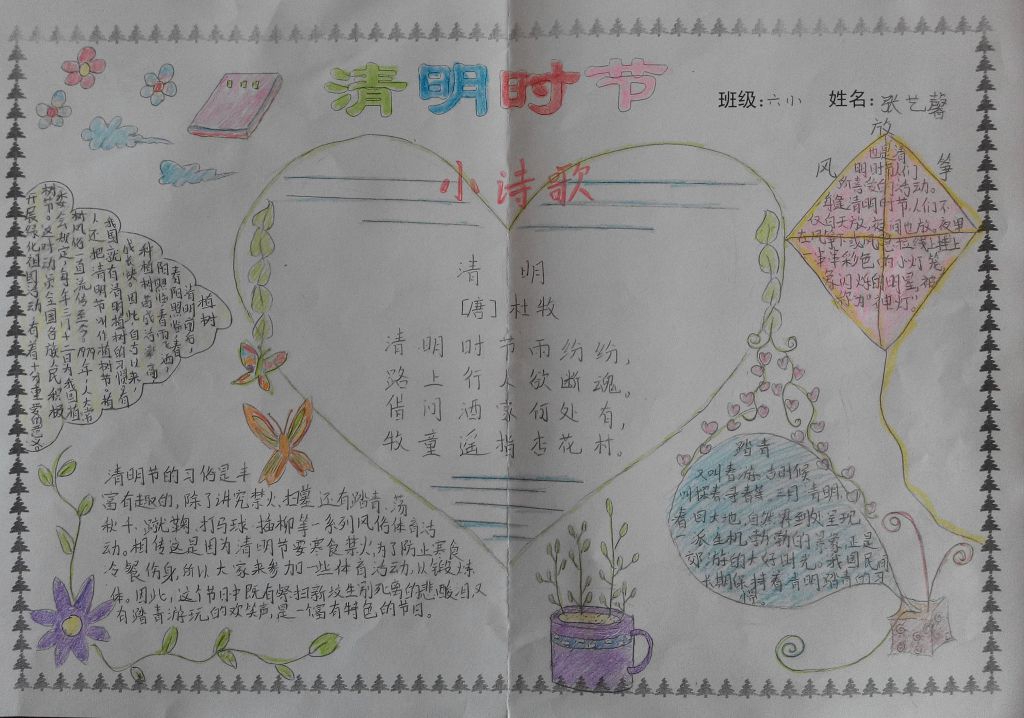 清明时节
班级:六小 姓名:张艺馨
小诗歌
清明
[唐]杜牧
清明时节雨纷纷,
路上行人欲断魂。
借问酒家何处有,
牧童遥指杏花村。
放
风筝
也是清
明时节人们
所喜爱的活动。
每逢清明时节人们不
仅白天放,夜间也放。夜里
在风筝下或风筝拉线上挂上
一串串彩色的小灯笼,
象闪烁的明星,被
称为“神灯”。
植树
清明前后,
春阳照临,春
雨飞洒,
种植树苗成活率高,
成长快。因此,自古以来,
我国就有清明植树的习惯。有
人还把清明节叫作植树节。植
树风俗一直流传至今。1979年,人大常
委会规定,每年三月十二日为我国植
树节。这对动员全国各族人民积极
开展绿化祖国活动,有着十分重要的意义。
清明节的习俗是丰
富有趣的,除了讲究禁火、扫墓,还有踏青、荡
秋千、蹴鞠、打马球、插柳等一系列风俗体育活
动。相传这是因为清明节要寒食禁火,为了防止寒食
冷餐伤身,所以大家来参加一些体育活动,以锻炼
体。因此,这个节日中既有祭扫新坟生别死离的悲酸泪,又
有踏青游玩的欢笑声,是一个富有特色的节日。
踏青
又叫春游。古时候
叫探春、寻春等。三月清明,
春回大地,自然界到处呈现
一派生机勃勃的景象,正是
郊游的大好时光。我国民间
长期保持着清明踏青的习
惯。